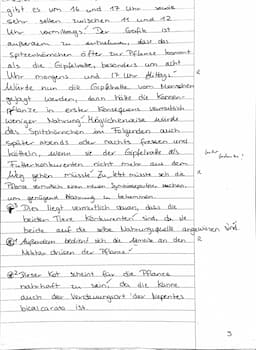 gibt es um 16 und 17 Uhr sowie
sehr selten zwischen 11 und 12
Uhr vormittags. Der Grafik ist
außerdem zu entnehmen, dass das
Spitzenhörnchen öfter zur Pflanze kommt
als die Gipfelratte, besonders um acht
Uhr morgens und 17 Uhr
Würde nun die Gipfelratte vom Menschen
gejagt werden, dann hätte die Kannen-
pflanze in erster Konsequenz vermutlich
weniger Nahrung. Möglicherweise würde
das Spitzhörnchen im Folgenden auch
später abends oder nachts fressen und
, wenn sie der Gipfelratte als
nicht mehr aus dem
Weg gehen müsste. Zu letzt müsste sich die
Pflanze vermutlich einen neuen Symbiosepartner suchen,
um genügend Nahrung zu bekommen.
Dies liegt vermutlich daran, dass die
beiden Tiere Konkurrenten sind, da sie
beide auf die selbe Nahrungsquelle angewiesen sind.
Außerdem bedient sich die Ameise an den
Nektar drüsen der Pflanze.
Dieser Kot scheint für die Pflanze
nahrhaft zu sein, da die Kanne
auch der Verdauungsort der Nepentes
bicalcarata ist.
3